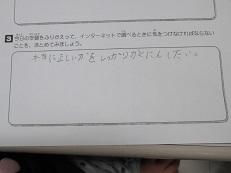 3 今日の学習をふりかえって、インターネットで調べるときに気をつけなければならない
ことを、まとめてみましょう。
本当に正しいかをしっかりかくにんしたい。